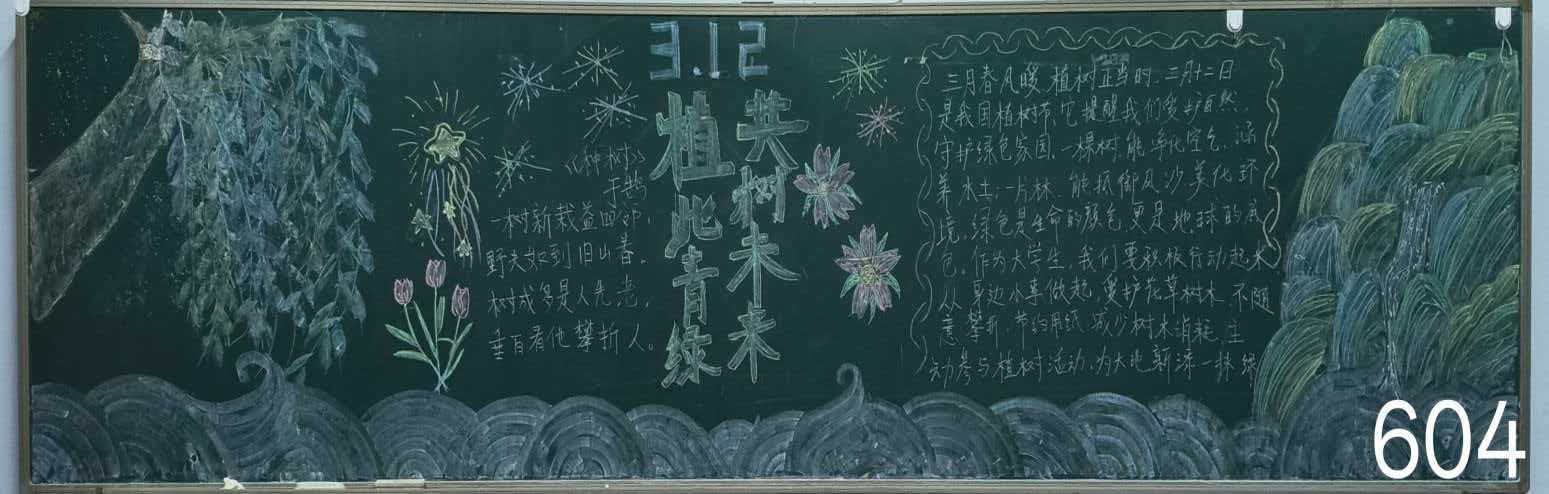 3.12
植此青绿
共树未来
《种树》
于鹄
一树新栽益四邻，
野夫如到旧山春。
树成多是人先老，
垂白看他攀折人。
三月春风暖，植树正当时，三月十二日
是我国植树节，它提醒我们爱护自然，
守护绿色家园，一棵树，能净化空气，涵
养水土；一片林，能抵御风沙，美化环
境。绿色是生命的颜色，更是地球的底
色。作为大学生，我们要积极行动起来
从身边小事做起，爱护花草树木，不随
意攀折，节约用纸，减少树木消耗，主
动参与植树活动，为大地新添一抹绿
604